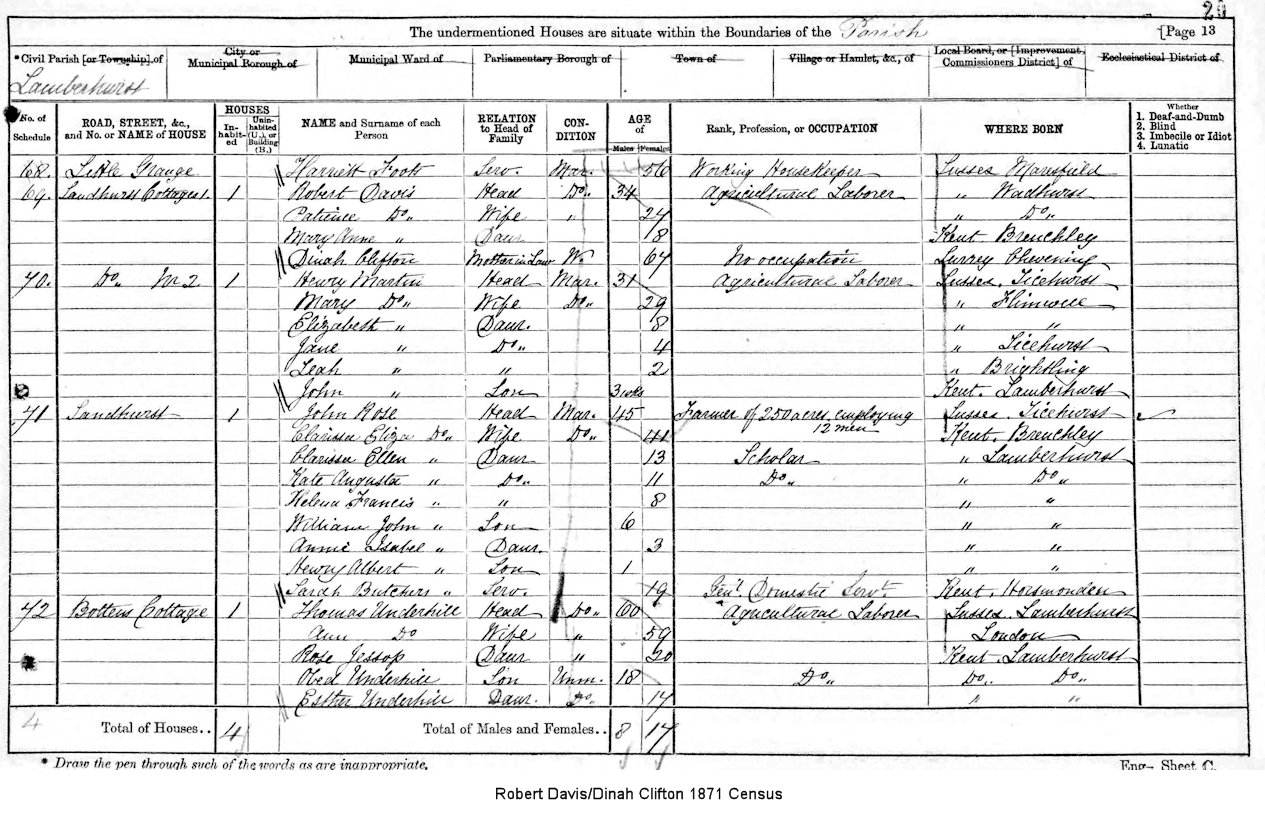 20
The undermentioned Houses are situate within the Boundaries of the Parish [Page 13
*Civil Parish [or Township] of City or Municipal Borough of Municipal Ward of Parliamentary Borough of Town of Village or Hamlet, &c., of Local Board, or [Improvement Commissioners District] of Ecclesiastical District of
Lamberhurst
No. of Schedule ROAD, STREET, &c., and No. or NAME of HOUSE HOUSES In-habit-ed Unin-habited (U.), or Building (B.) NAME and Surname of each Person RELATION to Head of Family CON-DITION AGE of Males Females Rank, Profession, or OCCUPATION WHERE BORN Whether 1. Deaf-and-Dumb 2. Blind 3. Imbecile or Idiot 4. Lunatic
68. Little Grange Harriett Foott Serv. Mar. 56 Working Housekeeper Sussex Maresfield
69. Sandhurst Cottages 1. 1 Robert Davis Head Do. 34 Agricultural Laborer " Wadhurst
Patience Do. Wife " 24 " Do.
Mary Anne " Daur 8 Kent. Brenchley
Dinah Clifton Mother in Law W. 67 No occupation Surrey Chevening
70. Do. No 2 1 Henry Martin Head Mar. 31 Agricultural Laborer Sussex. Ticehurst
Mary Do. Wife Do. 29 " Flimwell
Elizabeth " Daur. 8 " "
Jane " Do. 4 " Ticehurst
Leah " " 2 " Brightling
John " Son 3 wks Kent. Lamberhurst
71 Sandhurst 1 John Rose Head Mar. 45 Farmer of 250 acres employing 12 men Sussex. Ticehurst
Clarissa Eliza Do. Wife Do. 41 Kent. Brenchley
Clarissa Ellen " Daur 13 Scholar " Lamberhurst
Kate Augusta " Do. 11 Do. " Do.
Helena Francis " " 8 " "
William John " Son 6 " "
Annie Isabel " Daur. 3 " "
Henry Albert " Son 1 " "
Sarah Butchers " Serv. 19 Genl. Domestic Servt. Kent. Horsmonden
72 Bottens Cottage 1 Thomas Underhill Head Do. 60 Agricultural Laborer Sussex. Lamberhurst
Ann Do Wife " 59 London
Rose Jessop Daur " 20 Kent. Lamberhurst
Obed Underhill Son Unm. 18 Do. Do. Do.
Esther Underhill Daur. Do. 17 " "
4 Total of Houses.. 4 Total of Males and Females.. 8 17
* Draw the pen through such of the words as are inappropriate. Eng- Sheet C.
Robert Davis/Dinah Clifton 1871 Census